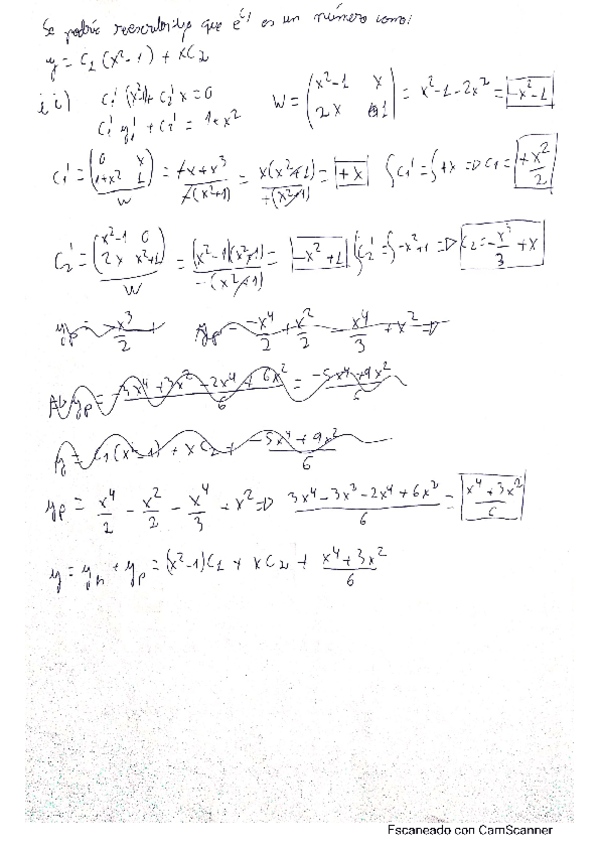 Se podría reescribir ya que e^{c_1} es un número como:
y = C_1(x²-1) + xC_2
ii) C_1'(x²-1) + C_2' x = 0
W = (x²-1 x; 2x 1) = x²-1-2x² = -x²-1
C_1' y_1' + C_2' = 1+x²
C_1' = (0 x; 1+x² 1)/W = (-x+x³)/(-(x²+1)) = x(x²+1)/(+(x²+1)) = +x ∫C_1' = ∫+x => C_1 = +x²/2
C_2' = (x²-1 0; 2x x²+1)/W = (x²-1)(x²+1)/(-(x²+1)) = -x²+1 ∫C_2' = ∫-x²+1 => C_2 = -x³/3 + x
y_p = -x³/2 + y_p = -x⁴/2 + x²/2 - x⁴/3 + x² =>
y_p = (-3x⁴+3x²-2x⁴+6x²)/6 = (-5x⁴+9x²)/6
y = C_1(x²-1) + xC_2 + (-5x⁴+9x²)/6
y_p = x⁴/2 - x²/2 - x⁴/3 + x² => (3x⁴-3x²-2x⁴+6x²)/6 = (x⁴+3x²)/6
y = y_h + y_p = (x²-1)C_1 + xC_2 + (x⁴+3x²)/6
Escaneado con CamScanner